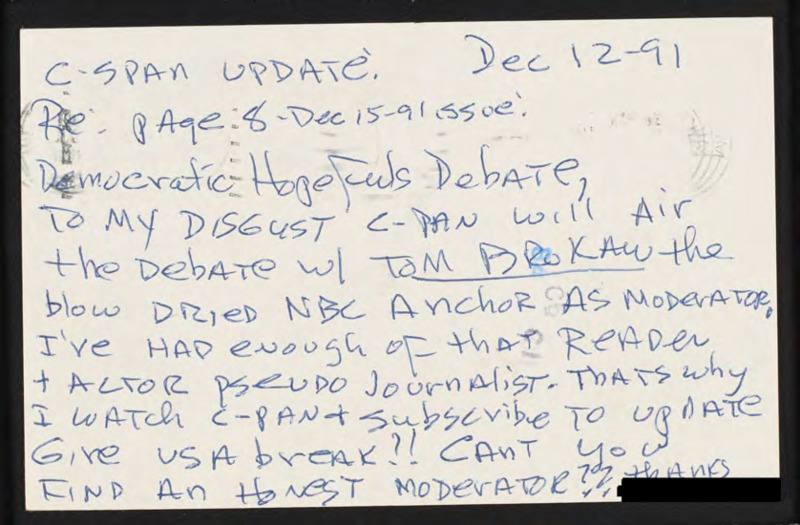 C-SPAN UPDATE. Dec 12-91
Re: pAge 8-Dec 15-91 issue:
Democratic Hopefuls DebATE,
To MY DISGUST C-PAN will Air
the DebATE w/ ToM BRoKAW the
blow DRIED NBC Anchor AS MoDERATOR,
I've HAD enough of thAT READER
+ ACTOR pseudo JournAlisT. THATS why
I WATCH C-PAN + subscribe TO upDATE
Give US A break!! CANT you
FIND An HoNEST MODERATOR?? thANKS